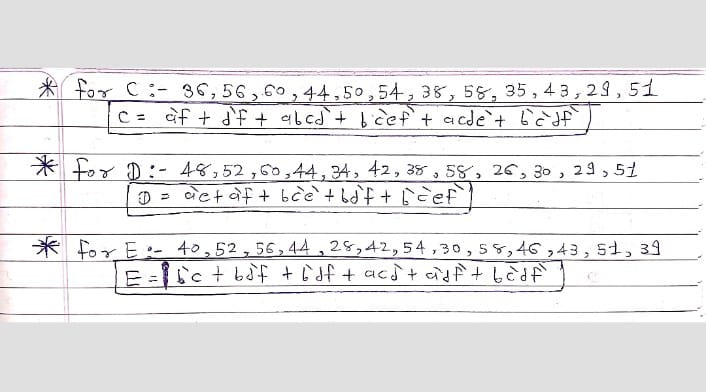 * for C :- 36, 56, 60, 44, 50, 54, 38, 58, 35, 43, 29, 51
C = a'f + d'f + abcd' + b'c'ef' + acde' + b'c'df'
* for D :- 48, 52, 60, 44, 34, 42, 38, 58, 26, 30, 29, 51
D = a'e + a'f + bc'e' + bd'f + b'c'ef'
* for E :- 40, 52, 56, 44, 28, 42, 54, 30, 58, 46, 43, 51, 39
E = b'c + bd'f + b'df + acd' + a'df' + bc'df'